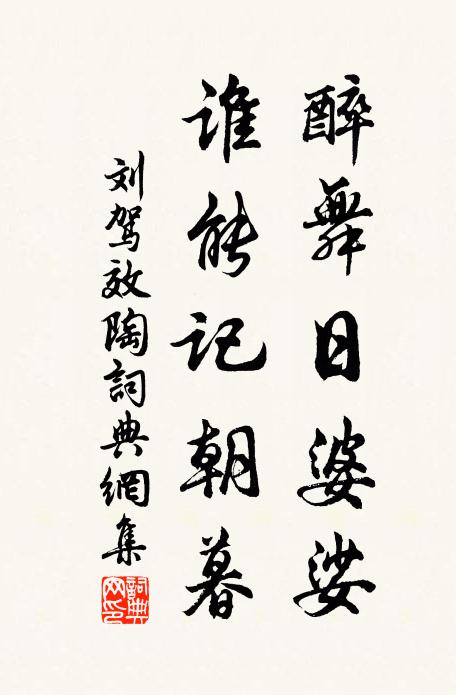 醉舞日婆娑
谁能记朝暮
刘驾效陶詞典網集
詞典网印